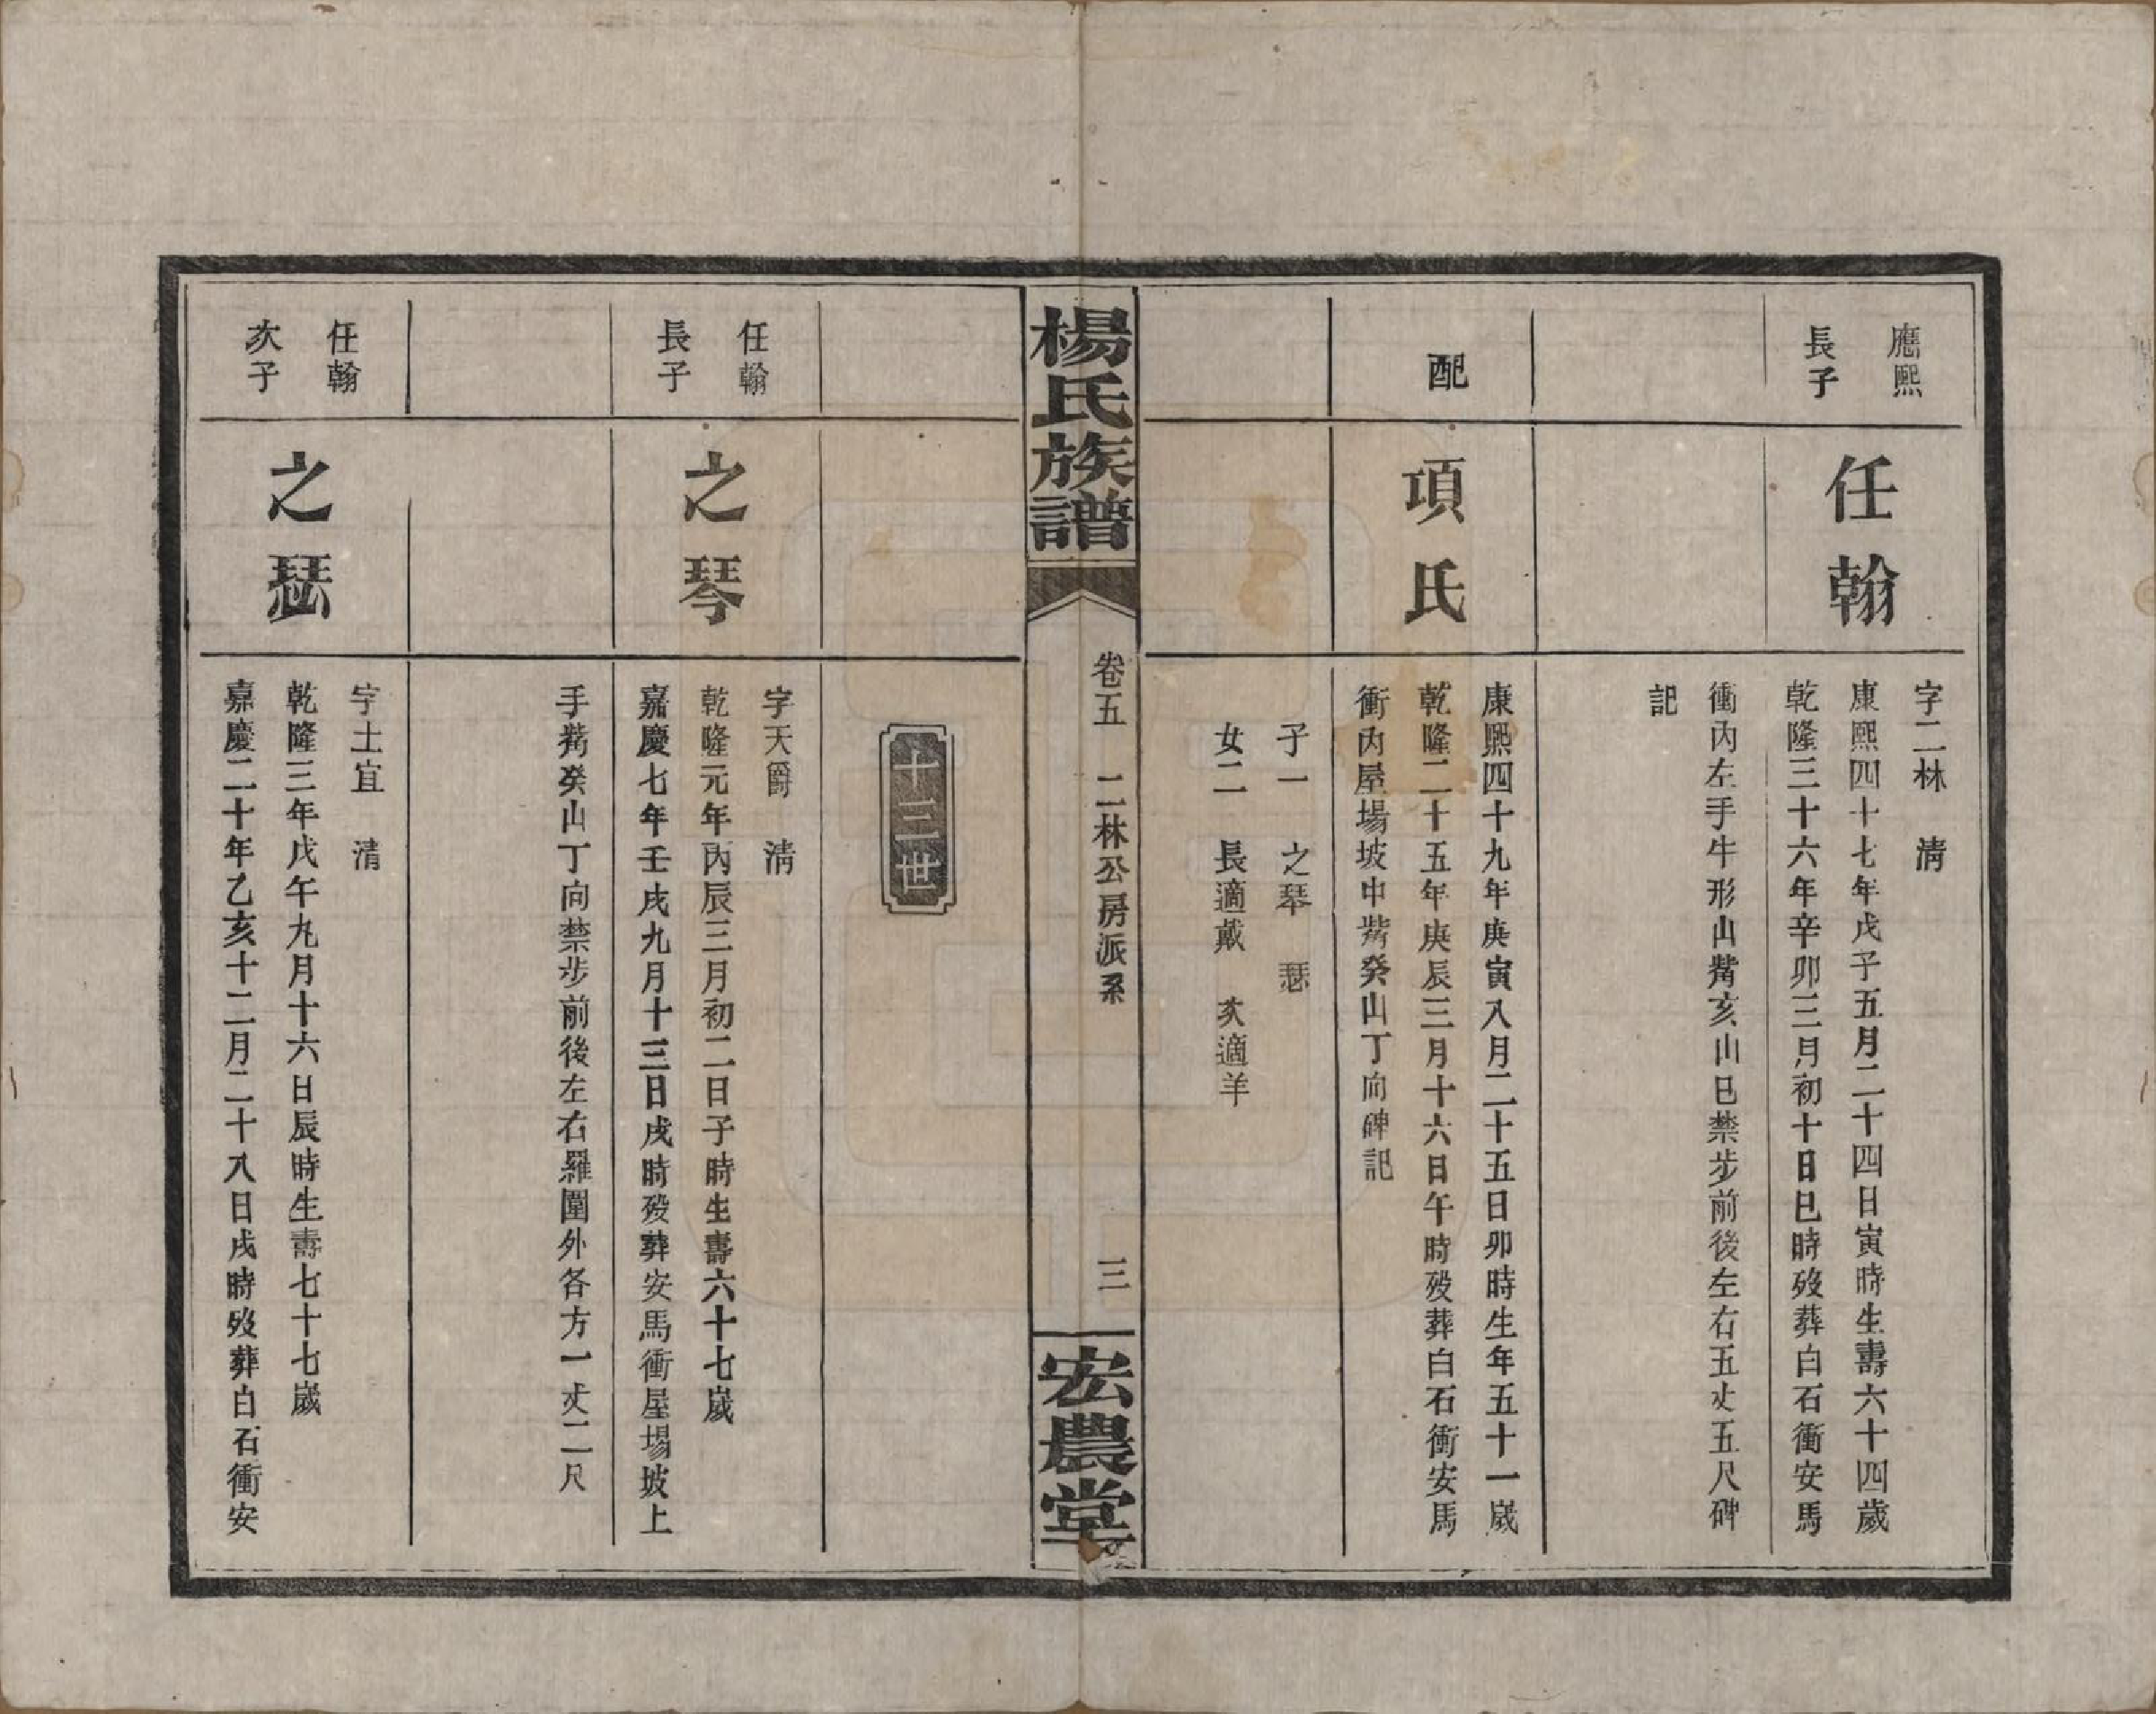 應熙
長子
任翰
字二林　清
康熙四十七年戊子五月二十四日寅時生壽六十四歲
乾隆三十六年辛卯三月初十日巳時歿葬白石衝安馬
衝內左手牛形山觜亥山巳禁步前後左右五丈五尺碑
記
配
項氏
康熙四十九年庚寅八月二十五日卯時生年五十一歲
乾隆二十五年庚辰三月十六日午時歿葬白石衝安馬
衝內屋場坡中觜癸山丁向碑記
子一　之琴　瑟
女二　長適戴　次適羊
楊氏族譜
卷五　二林公房派系
三
宏農堂
十三世
任翰
長子
之琴
字天爵　清
乾隆元年丙辰三月初二日子時生壽六十七歲
嘉慶七年壬戌九月十三日戌時歿葬安馬衝屋場坡上
手觜癸山丁向禁步前後左右羅圍外各方一丈二尺
任翰
次子
之瑟
字士宜　清
乾隆三年戊午九月十六日辰時生壽七十七歲
嘉慶二十年乙亥十二月二十八日戌時歿葬白石衝安